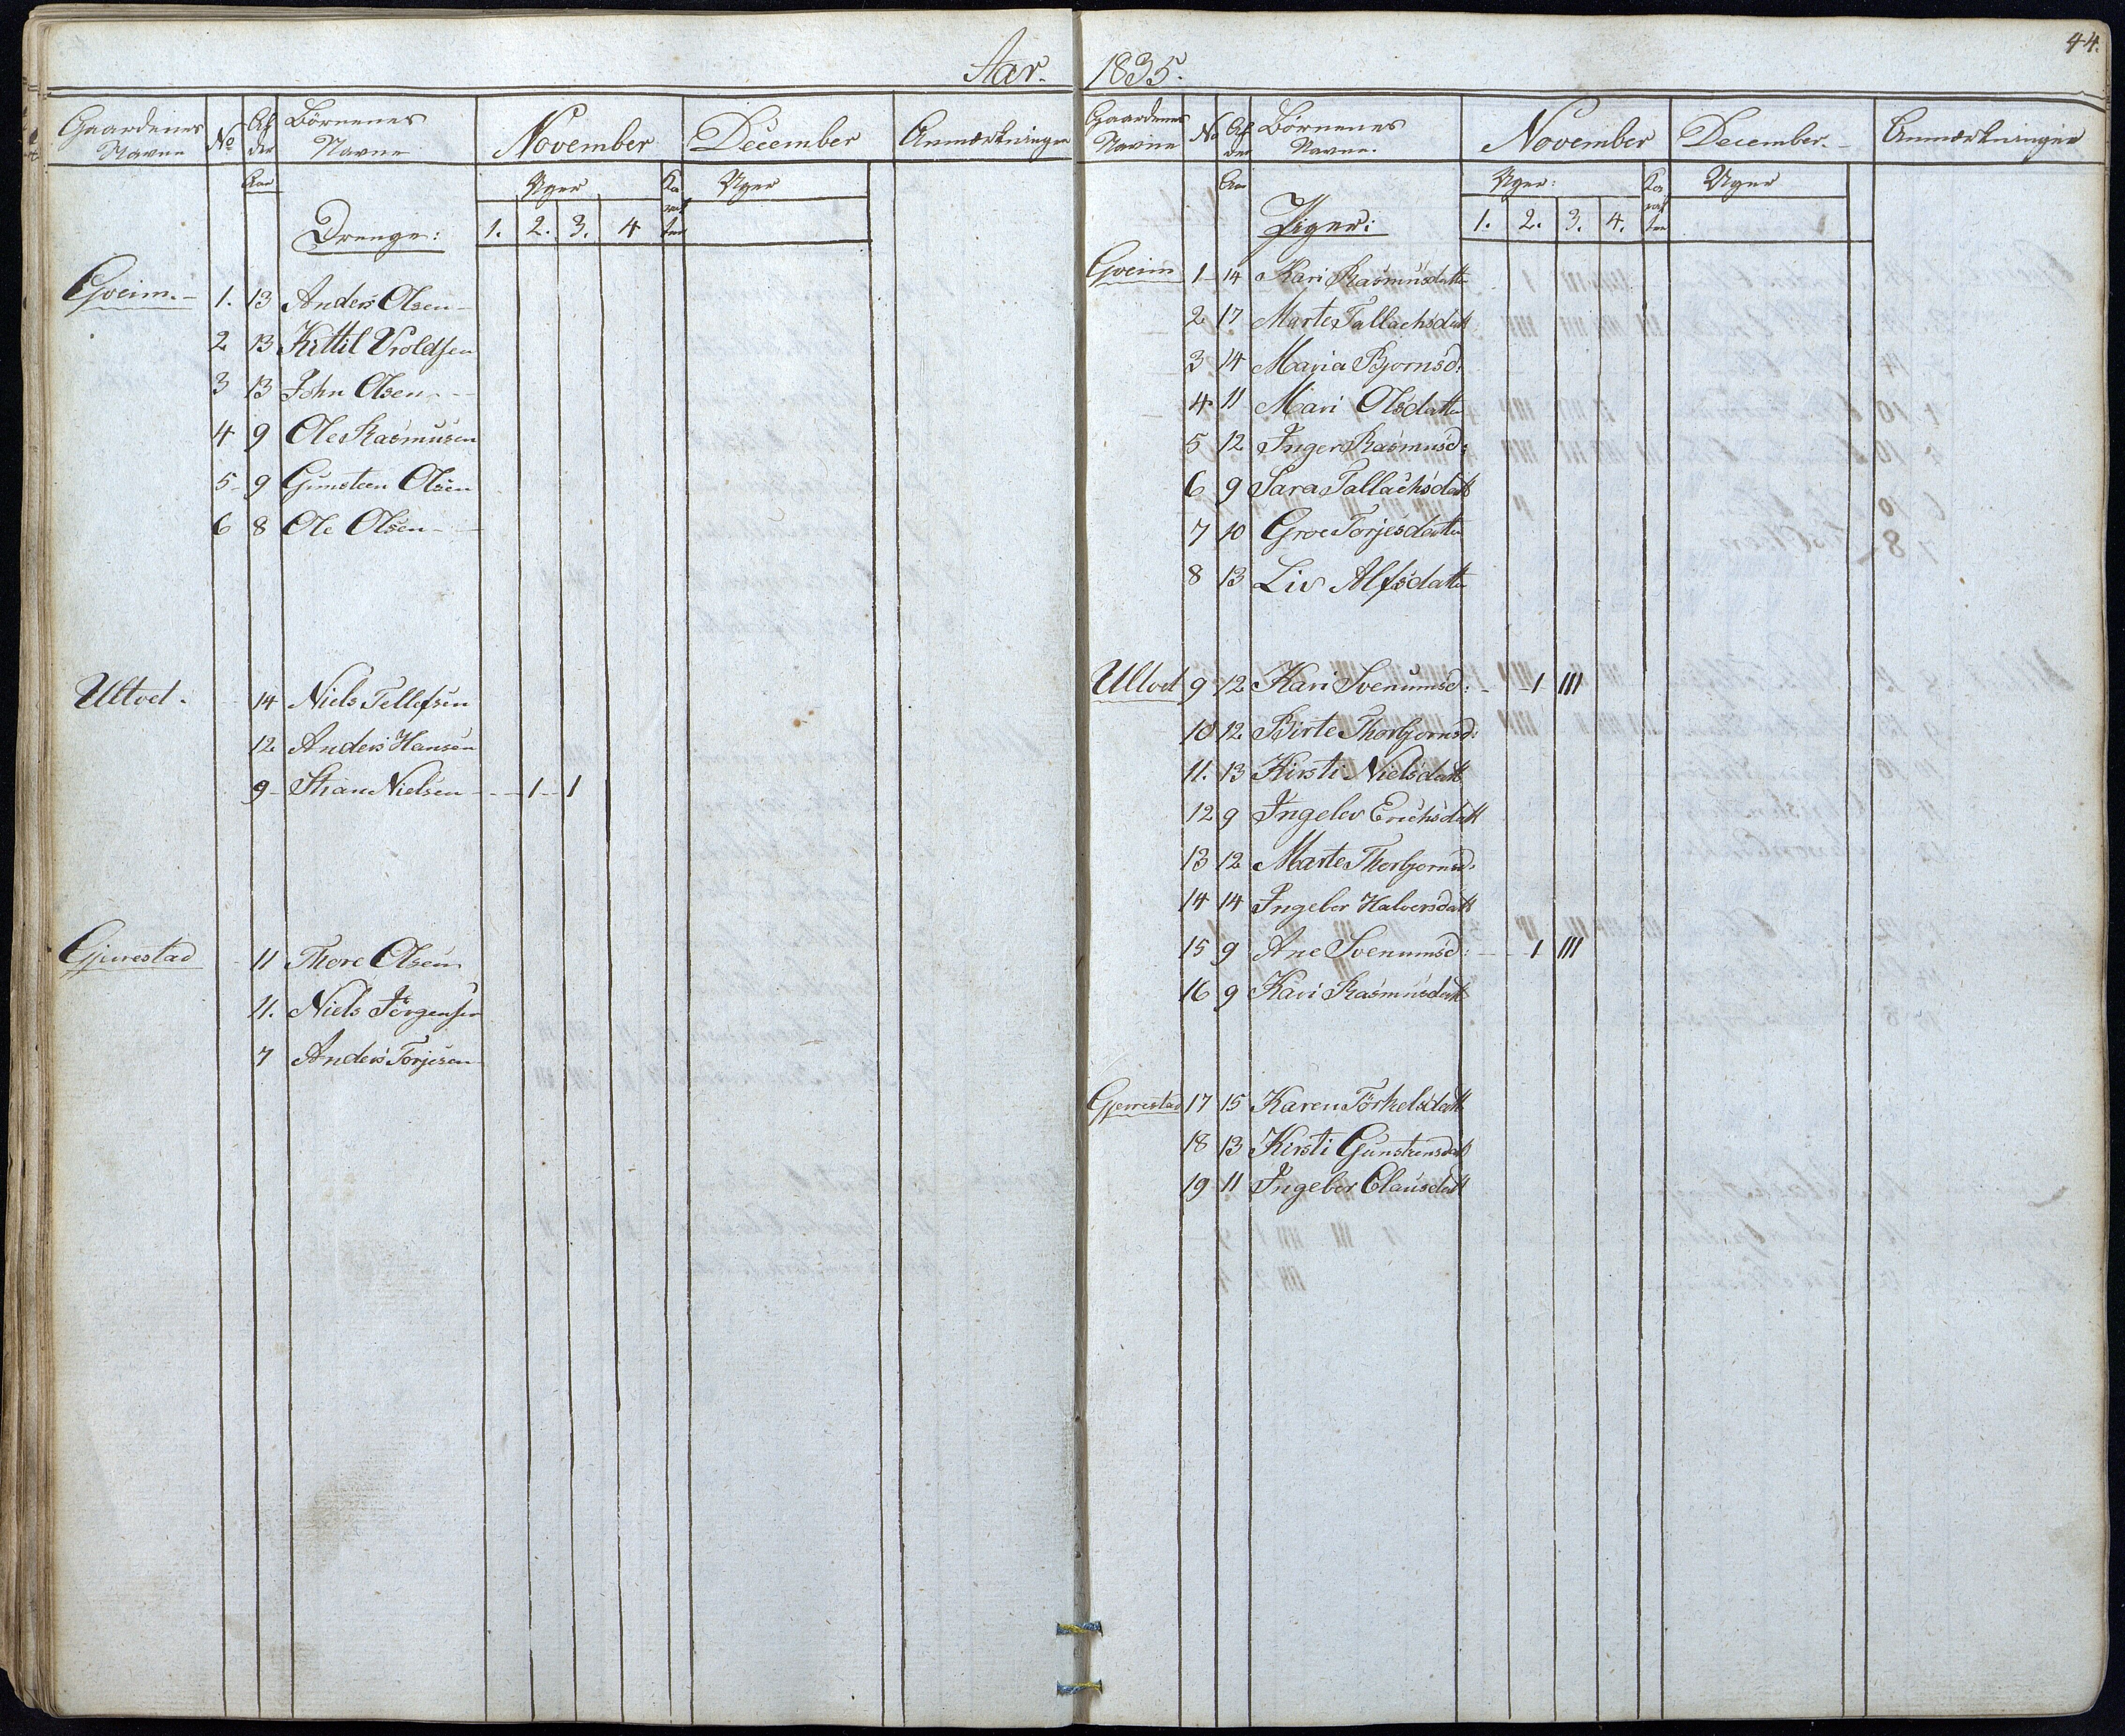 Aar.
Gaardenes Navne No Alder Aar Børnenes Navne November December Anmærkninger
Uger Karakter Uger
Drenge: 1. 2. 3. 4
Gveim. 1. 13 Anders Olsen
2 13 Kittil Vroldsen
3 13 John Olsen
4 9 Ole Rasmusen
5 9 Gunsteen Olsen
6 8 Ole Olsen
Ultvet. 14 Niels Tellefsen
12 Anders Hansen
9 Nielsen 1 1
Gjerrestad 11 Thore Olsen
11. Niels Jörgensen
7 Anders Torjesen
1835.
44.
Gaardenes Navne No Alder Aar Børnenes Navne. November December. Anmærkninger
Uger: Karakter Uger
Piger: 1. 2. 3. 4.
Gveim 1 14 Kari Rasmusdatter
2 17 Marte Tallachsdatt
3 14 Maria Bjornsd:
4 11 Mari Olsdatter
5 12 Inger Rasmusd:
6 9 Sara Tallachsdatt
7 10 Groe Torjesdatter
8 13 Liv Alfsdatter
Ultvet 9 12 Kari Svenumsd: 1 III
10 12 Birte Thorbjornsd:
11. 13 Kirsti Nielsdatt
12 9 Ingelev Erichsdatt
13 12 Marte Thorbjornsd:
14 14 Ingebor Halversdatt
15 9 Ane Svenumsd: 1 III
16 9 Kari Rasmusdatt
Gjerrestad 17 15 Karen Törkelsdatt
18 13 Kirsti Gunstensdatt
19 11 Ingebor Clausdatt